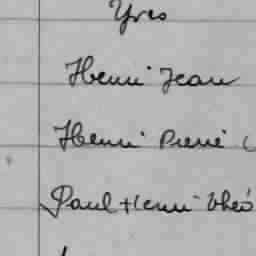 Yves
Henri Jean
Henri Pierre
Paul Henri Théo